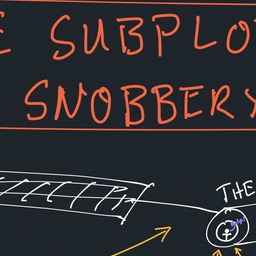 E SUBPLO
SNOBBERY
THE